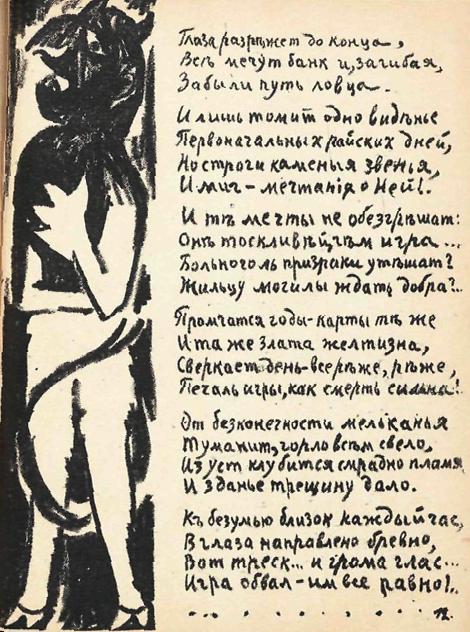 Глаза разрѣжет до конца,
Всѣ мечут банк и, загибая,
Забыли путь ловца.
И лишь томит одно видѣнье
Первоначальных райских дней,
Но строги каменья звенья,
И миг – мечтанія о Ней!..
И тѣ мечты не обезгрѣшат:
Онѣ тоскливѣй, чѣм игра...
Больного ль призраки утѣшат?
Жильцу могилы ждать добра?..
Промчатся годы – карты тѣ же
И та же злата желтизна,
Сверкает день – все рѣже, рѣже,
Печаль игры, как смерть сильна!
От безконечности мельканья
Туманит, горло всѣм свело,
Из уст клубится смрадно пламя
И зданье трещину дало.
Къ безумью близок каждый час,
В глаза направлено бревно,
Вот треск... и грома глас...
Игра обвал – им все равно!..
12.